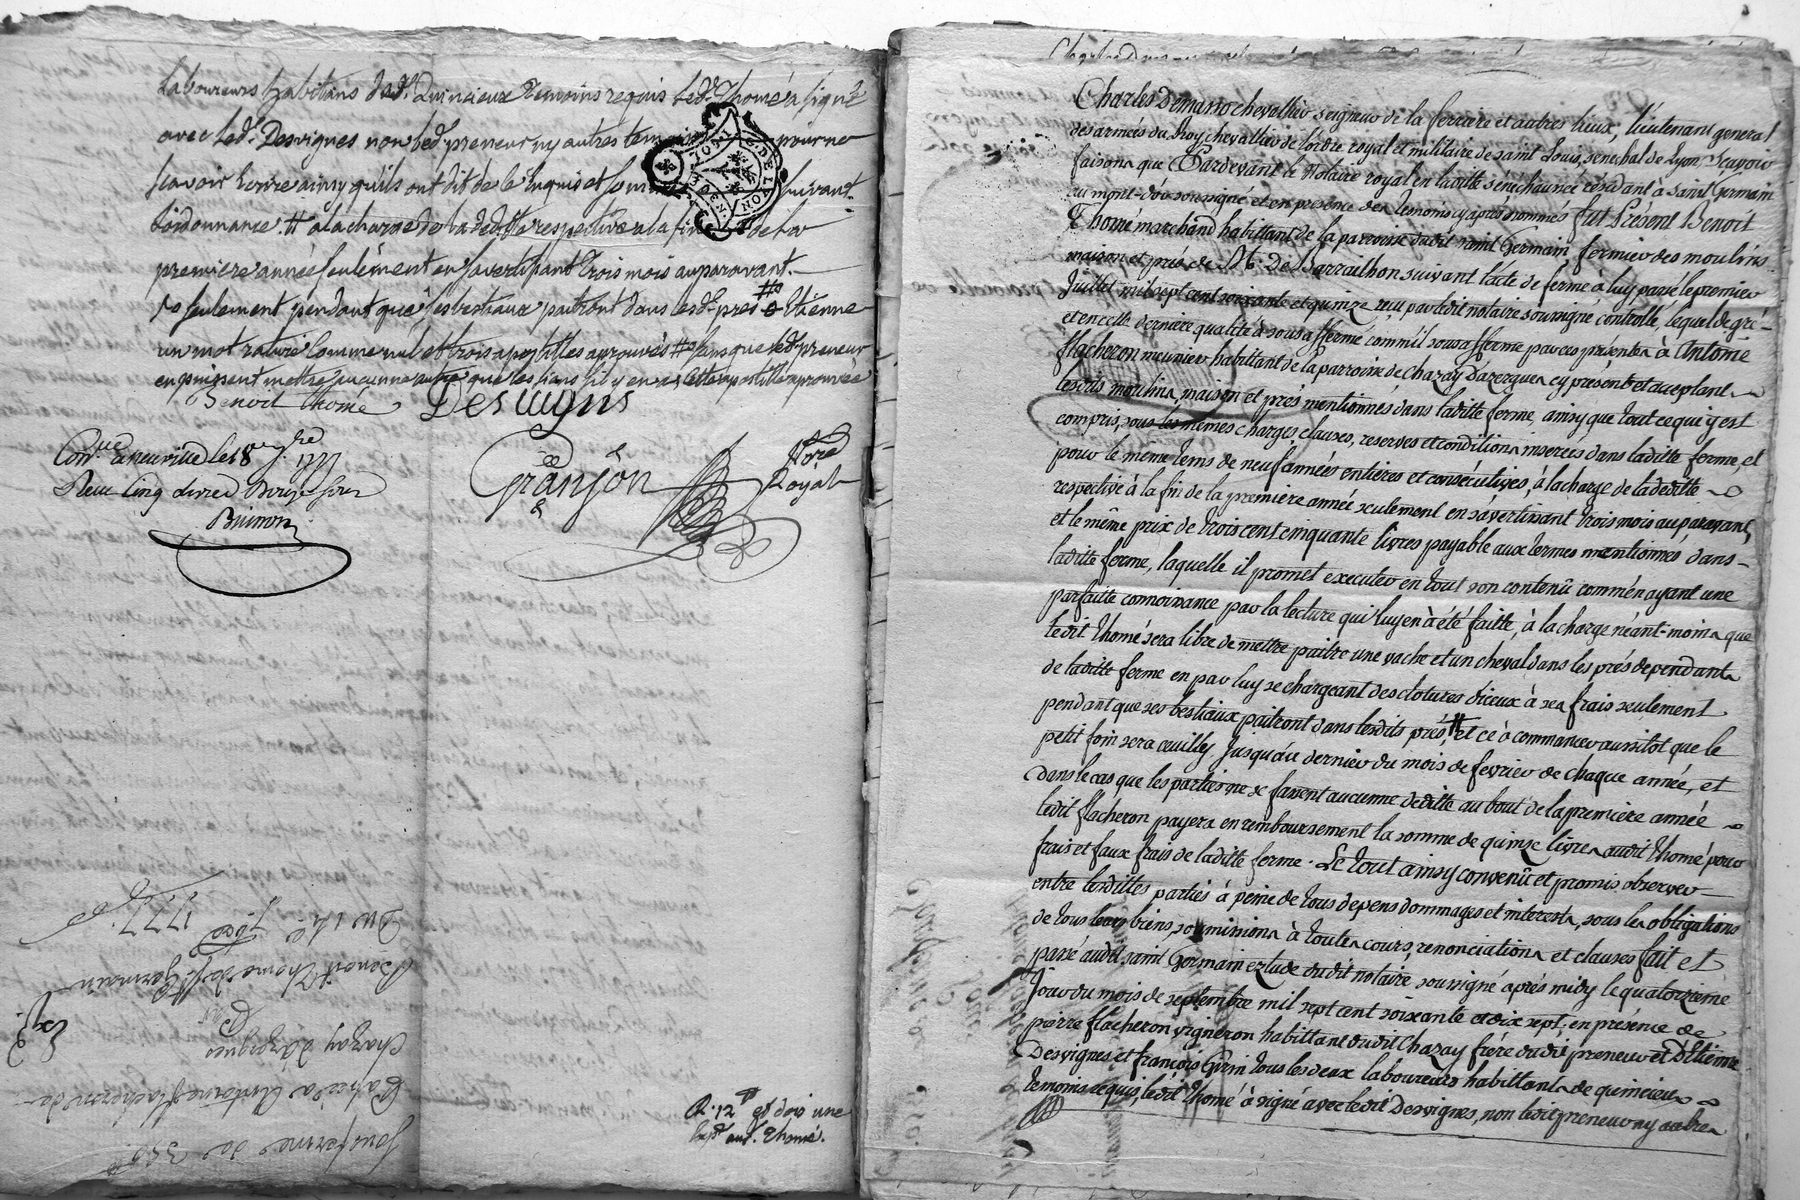 Laboureurs habitans dud. Quincieux temoins requis led. Thomé a signé
avec led. Desvignes non led. preneur ny autres temoins pour ne
scavoir Ecrire ainsy quils ont dit de ce Enquis et suivant
Lordonnance. # a la charge de la deditte respective a la fin de la
premiere année seulement en s'avertissant trois mois auparavant.
seulement pendant que ses bestiaux paitront dans lesd. prés # Etienne
un mot raturé comme nul et trois apostilles aprouvés # sans que led. preneur
en puissent mettre aucunne autre que les siens s'il y en a Cette apostille aprouvée
Benoit Thomé Desvignes
Con. a neuville le 18
Reçu Cinq livres Douze sous
Granjon
Nore
Royal
GEN. DE LYON
Sousferme de 350
Passée a Antoine Flacheron de
Chazay d'Azergues
Par
Benoit Thomé de St. Germain
Du 14e 7bre
1777
R. 12 et dois une
Exp. aud. Thomé.
Charles Demasso chevallier seigneur de la ferriere et autres lieux, lieutenant general
des armées du Roy chevallier de lordre royal et militaire de saint Louis, senechal de Lyon Sçavoir
faisons que Pardevant le Notaire royal en laditte sénéchaussée résidant à saint Germain
au mont-dor soussigné et en presence des temoins cy après nommés fut Présent Benoit
Thomé marchand habittant de la parroisse dudit saint Germain, fermier des moulins
maison et prés de M. De Barrailhon suivant l'acte de ferme à luy passé le premier
Juillet mil sept cent soixante et quinze reçu par ledit notaire soussigné controllé, lequel de gré
et en cette derniere qualité à sousaffermé comm'il sousafferme par ces présentes à Antoine
flacheron meunier habittant de la parroisse de Chazay Dazergues cy présent et acceptant
lesdits moulins, maison et prés mentionnés dans laditte ferme, ainsy que tout ce qui y est
compris, sous les mêmes charges clauses, reserves et conditions inserées dans laditte ferme, et
pour le même tems de neuf années entieres et consécutives, à la charge de la deditte
respective à la fin de la premiere année seulement en s'avertissant trois mois auparavant,
et le même prix de trois cent cinquante livres payable aux termes mentionnés dans
laditte ferme, laquelle il promet executer en tout son contenû comm'en ayant une
parfaitte connoissance par la lecture qui luy en à été faitte, à la charge néant-moins que
ledit Thomé sera libre de mettre paitre une vache et un cheval dans les prés dependant
de laditte ferme en par luy se chargeant des clotures d'iceux à ses frais seulement
pendant que ses bestiaux paitront dans lesdits prés, # et ce à commancer aussitot que le
petit foin sera ceuilly jusqu'au dernier du mois de fevrier de chaque année, et
dans le cas que les parties ne se fassent aucunne deditte au bout de la premiere année
ledit flacheron payera en remboursement la somme de quinze livres audit Thomé pour
frais et faux frais de laditte ferme. Le tout ainsy convenû et promis observer
entre lesdittes parties à peine de tous depens dommages et interests, sous les obligations
de tous leurs biens, soumissions à toutes cours, renonciations et clauses fait et
passé audit saint Germain eztude dudit notaire soussigné après midy le quatorzieme
jour du mois de septembre mil sept cent soixante et dix sept; en présence de
pierre flacheron vigneron habittant dudit Chazay frére dudit preneur et d'Etienne
Desvignes et françois Girin tous les deux laboureurs habittants de quincieux
temoins requis, ledit Thomé à signé avec ledit Desvignes, non ledit preneur ny autres